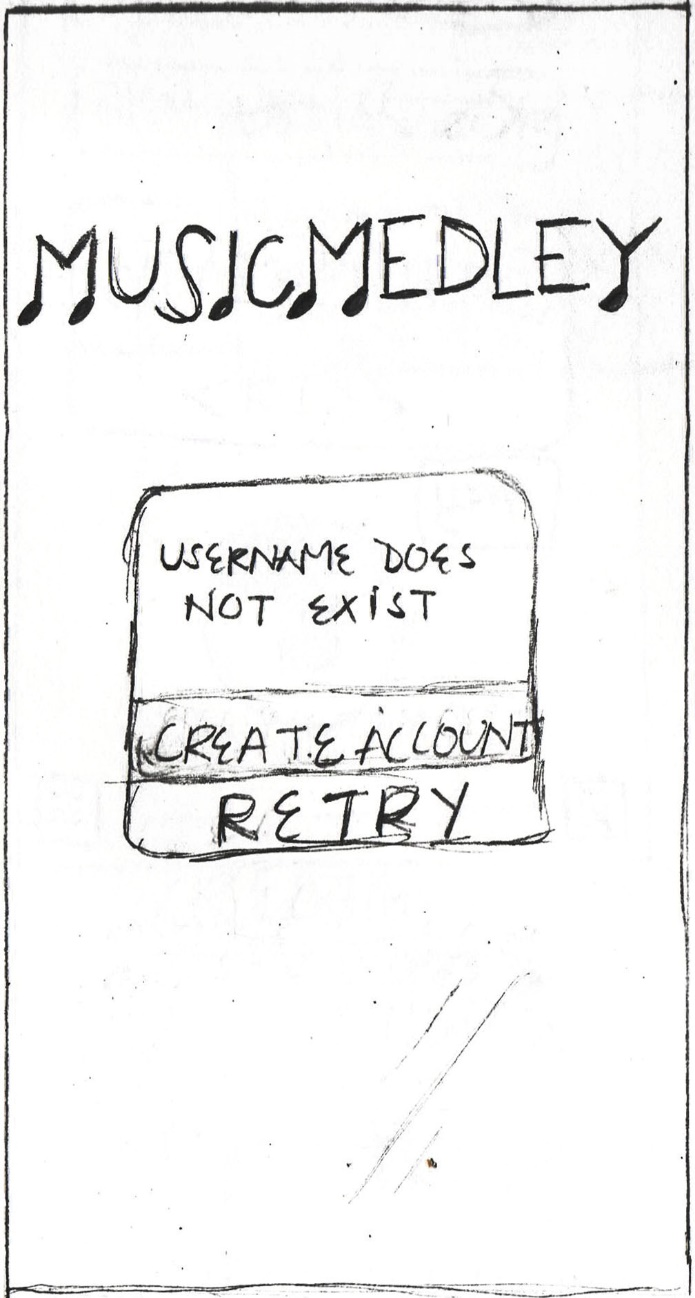 MUSICMEDLEY
USERNAME DOES
NOT EXIST
CREATE ACCOUNT
RETRY